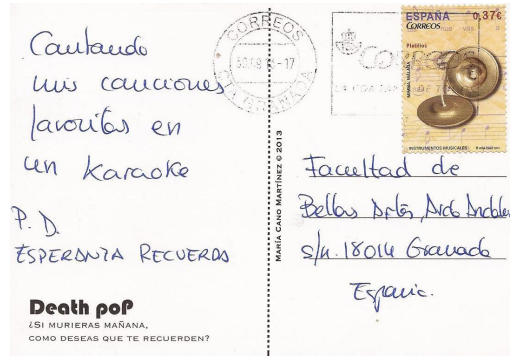 Cantando
mis canciones
favoritas en
un Karaoke
P.D.
ESPERANZA RECUERDA
Death poP
¿SI MURIERAS MAÑANA,
COMO DESEAS QUE TE RECUERDEN?
MARÍA CANO MARTÍNEZ © 2013
CORREOS
ESPAÑA 0,37€
CORREOS
Platillos
INSTRUMENTOS MUSICALES
Facultad de
Bellas Artes, Avda Andalu
s/n. 18014 Granada
España.